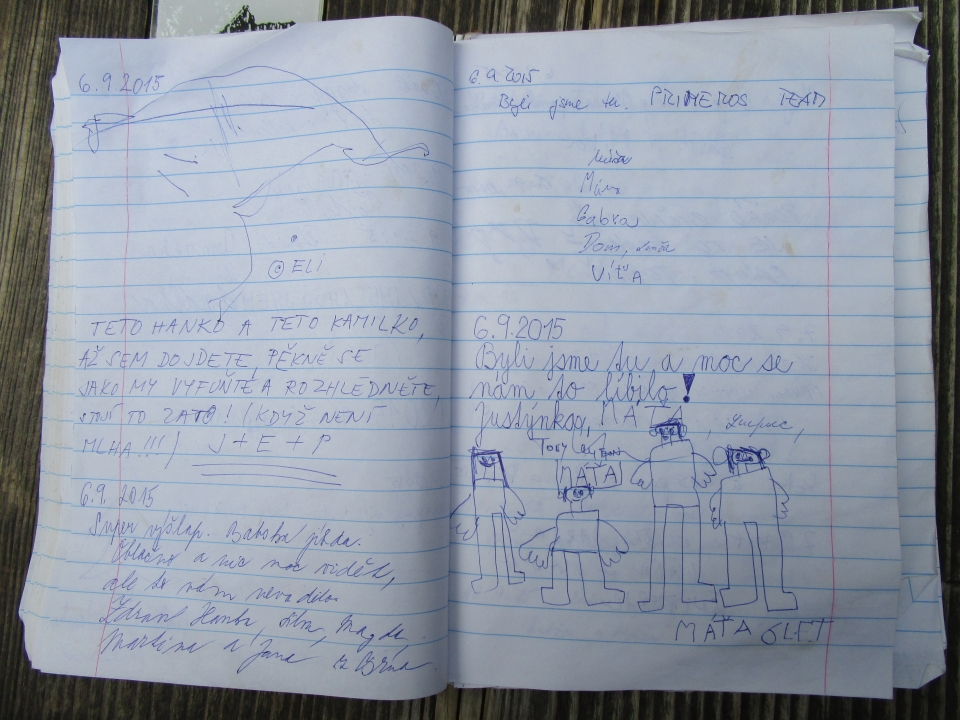 6.9.2015
ELI
TETO HANKO A TETO KAMILKO,
AŽ SEM DOJDETE, PĚKNĚ SE
JAKO MY VYFUŇTE A ROZHLÉDNĚTE,
STOJÍ TO ZATO! (KDYŽ NENÍ
MLHA!!!) J + E + P
6.9. 2015
Super výšlap. Baboba jízda.
Oblačno a nic moc vidět,
ale to nám nevadilo.
Zdraví Hanka, Magda,
Martina a Jana z Brna
6.9.2015
Byli jsme tu. PRIMEROS TEAM
Gabra
Dom,
VÍŤA
6.9.2015
Byli jsme tu a moc se
nám to líbilo!
Justýnka, MÁŤA
MÁŤA
MÁŤA 6LET